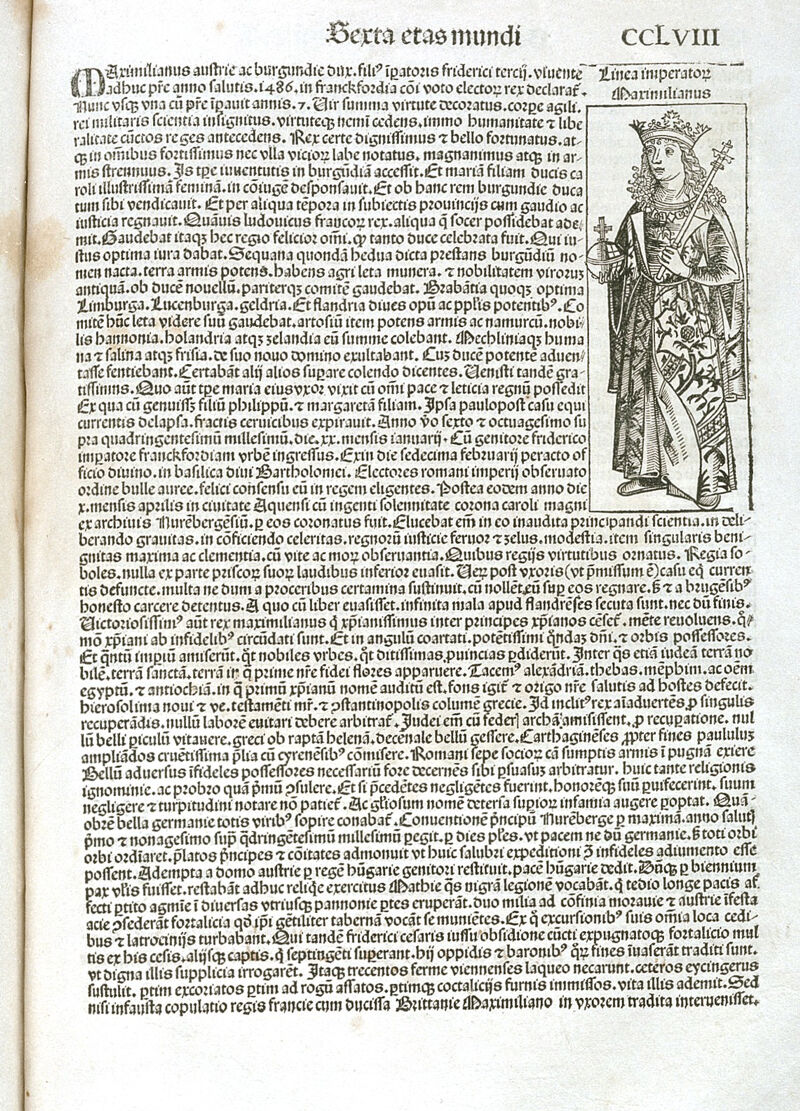 Sexta etas mundi CCLVIII
Linea imperatoꝝ
Maximilianus
MAximilianus austrie ac burgundie dux. filiꝰ īꝑatoris friderici tercij. viuente
adhuc pr̄e anno salutis. 1486. in franckfordia cōi voto elector̄ rex declarat᷑.
Nunc vsqꝫ vna cū pr̄e īꝑauit annis. 7. Uir summa virtute decoratus. corꝑe agili.
rei militaris scientia insignitus. virtuteqꝫ nemī cedens. immo humanitate ⁊ libe
ralitate cūctos reges antecedens. Rex certe dignissimus ⁊ bello fortunatus. at⸗
qꝫ in om̄ibus fortissimus nec vlla vicioꝝ labe notatus. magnanimus atqꝫ in ar⸗
mis strennuus. Is tꝑe iuuentutis in burgūdiā accessit. Et mariā filiam ducis ca
roli illustrissimā feminā. in cōiugē desponsauit. Et ob hanc rem burgundie duca
tum sibi vendicauit. Et per aliqua tēpora in subiectis prouincijs cum gaudio ac
iusticia regnauit. Quāuis ludouicus francoꝝ rex. aliqua q̄ socer possidebat ade⸗
mit. Gaudebat itaqꝫ hec regio felicior om̄i. ꝙ tanto duce celebrata fuit. Qui iu⸗
stus optima iura dabat. Sequana quondā hedua dicta prestans burgūdiū no⸗
men nacta. terra armis potens. habens agri leta munera. ⁊ nobilitatem viroruꝫ
antiquā. ob ducē nouellū. pariterqꝫ comitē gaudebat. Brabātia quoqꝫ optima
Limburga. Lucenburga. geldria. Et flandria diues opū ac pp̄lis potentibꝰ. Co
mitē hūc leta videre suū gaudebat. artosiū item potens armis ac namurcū. nobi⸗
lis hannonia. holandria atqꝫ zelandia eū summe colebant. Mechliniaqꝫ huma
na ⁊ salina atqꝫ frisia. de suo nouo domino exultabant. Cuꝫ ducē potentē aduen⸗
tasse sentiebant. Certabāt alij alios suꝑare colendo dicentes. Uenisti tandē gra⸗
tissimus. Quo aūt tꝑe maria eius vxor vixit cū om̄i pace ⁊ leticia regnū possedit
Ex qua cū genuissꝫ filiū philippū. ⁊ margaretā filiam. Ipsa paulopost casu equi
currentis delapsa. fractis ceruicibus expirauit. Anno v̄o sexto ⁊ octuagesimo su
pra quadringentesimū millesimū. die. xx. mensis ianuarij. Cū genitore friderico
imꝑatore franckfordiam vrbē ingressus. Exin die sedecima februarij peracto of
ficio diuino. in basilica diui Bartholomei. Electores romani imperij obseruato
ordine bulle auree. felici consensu eū in regem eligentes. Postea eodem anno die
x. mensis aprilis in ciuitate Aquensi cū ingenti solennitate corona caroli magni
ex archiuis Nurēbergēsiū. ꝑ eos coronatus fuit. Elucebat em̄ in eo inaudita principandi scientia. in deli⸗
berando grauitas. in cōficiendo celeritas. regnorū iusticie feruor ⁊ zelus. modestia. item singularis beni⸗
gnitas maxima ac clementia. cū vite ac moꝝ obseruantia. Quibus regijs virtutibus ornatus. Regia so⸗
boles. nulla ex parte priscoꝝ suoꝝ laudibus inferior euasit. Ueꝝ post vxoris (vt p̄missum ē) casu eq̄ curren
tis defuncte. multa ne dum a proceribus certamina sustinuit. cū nollēt eū suꝑ eos regnare. s̄ ⁊ a brugēsibꝰ
honesto carcere detentus. A quo cū liber euasisset. infinita mala apud flandrēses secuta sunt. nec dū finis.
Uictoriosissimꝰ aūt rex maximilianus q̄ xp̄ianissimus inter principes xp̄ianos cēset᷑. mēte reuoluens. q̄⸗
mō xp̄iani ab infidelibꝰ circūdati sunt. Et in angulū coartati. potētissimi q̄ndaꝫ dn̄i. ⁊ orbis possessores.
Et q̄ntū imꝑiū amiserūt. q̄t nobiles vrbes. q̄t ditissimas ꝓuincias ꝑdiderūt. Inter q̄s etiā iudeā terrā no
bilē. terrā sanctā. terrā in q̄ prime nr̄e fidei flores apparuere. Tacem̄ alexādriā. thebas. mēphim. ac oēm
egyptū. ⁊ antiochiā. in q̄ primū xp̄ianū nomē auditū est. fons igit᷑ ⁊ origo nr̄e salutis ad hostes defecit.
hierosolima noui ⁊ ve. testamēti mr̄. ⁊ ꝯstantinopolis columē grecie. Id inclitꝰ rex aīaduertēs ꝓ singulis
recuperādis. nullū laborē euitari debere arbitrat᷑. Iudei em̄ cū federꝭ archā amisissent. ꝓ recuꝑatione. nul
lū belli ꝑiculū vitauere. greci ob raptā helenā. decēnale bellū gessere. Carthaginēses ꝓpter fines paululuꝫ
ampliādos cruētissima p̄lia cū cyrenēsibꝰ cōmisere. Romani sepe socioꝝ cā sumptis armis ī pugnā exiere
Bellū aduersus īfideles possessores necessariū fore decernēs sibi ꝑsuasuꝫ arbitratur. huic tante religionis
ignominie. ac probro quā p̄mū ꝯsulere. Et si p̄cedētes negligētes fuerint. honorēqꝫ suū ꝑuifecerint. suum
negligere ⁊ turpitudini notare nō patiet᷑. Ac gl̄iosum nomē detersa suꝑior infamia augere ꝓoptat. Quā⸗
obrē bella germanie totis viribꝰ sopire conabat᷑. Conuentionē p̄ncipū Nurēberge ꝑ maximā. anno salutꝭ
p̄mo ⁊ nonagesimo suꝑ q̄dringētesimū millesimū ꝑegit. ꝑ dies pl̄es. vt pacem ne dū germanie. s̄ toti orbi
orbi ordīaret. p̄latos p̄ncipes ⁊ cōitates admonuit vt huic salubri expeditioni ꝯ infideles adiumento esse
possent. Adempta a domo austrie ꝑ regē hūgarie genitori restituit. pacē hūgarie dedit. Dn̄qꝫ ꝑ biennium
pax vl̄is fuisset. restabāt adhuc reliq̄e exercitus Mathie q̄s nigrā legionē vocabāt. q̄ tedio longe pacis af
fecti ꝑtito agmīe ī diuersas vtriusqꝫ pannonie ꝑtes eruperāt. duo milia ad cōfinia morauie ⁊ austrie īfesta
acie ꝯsederāt fortalicia qd̄ ip̄i gētiliter tabernā vocāt se muniētes. Ex q̄ excursionibꝰ suis om̄ia loca cedi⸗
bus ⁊ latrocinijs turbabant. Qui tandē friderici cesaris iussu obsidione cūcti expugnatoqꝫ fortalicio mul
tis ex his cesis. alijsqꝫ captis. q̄ septingēti suꝑerant. hij oppidis ⁊ baronibꝰ q̄ꝝ fines īuaserāt traditi sunt.
vt digna illis supplicia irrogarēt. Itaqꝫ trecentos ferme viennenses laqueo necarunt. ceteros eycingerus
sustulit. ꝑtim excoriatos ꝑtim ad rogū assatos. ꝑtimqꝫ coctalicijs furnis immissos. vita illis ademit. Sed
nisi infausta copulatio regis francie cum ducissa Brittanie Maximiliano in vxorem tradita interuenisset.